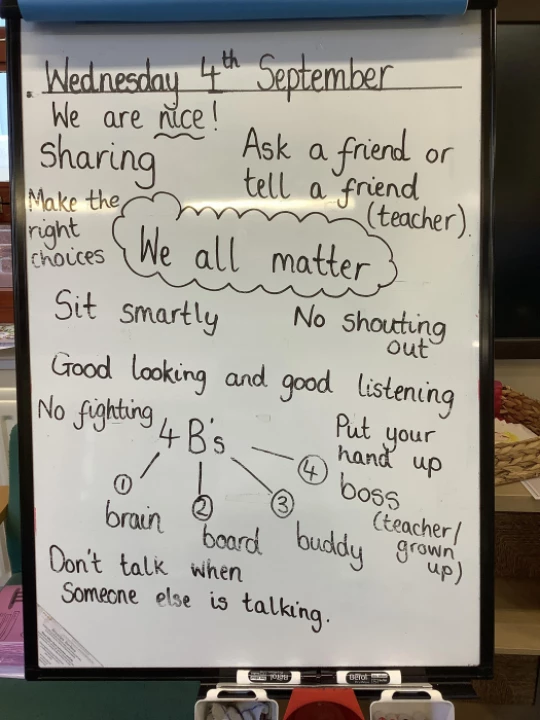 Wednesday 4th September
We are nice!
Sharing
Ask a friend or
tell a friend
(teacher).
Make the
right
choices
We all matter
Sit smartly
No shouting
out
Good looking and good listening
No fighting
4 B's
Put your
hand up
1
brain
2
board
3
buddy
4
boss
(teacher/
grown
up)
Don't talk when
Someone else is talking.
Berol
Berol